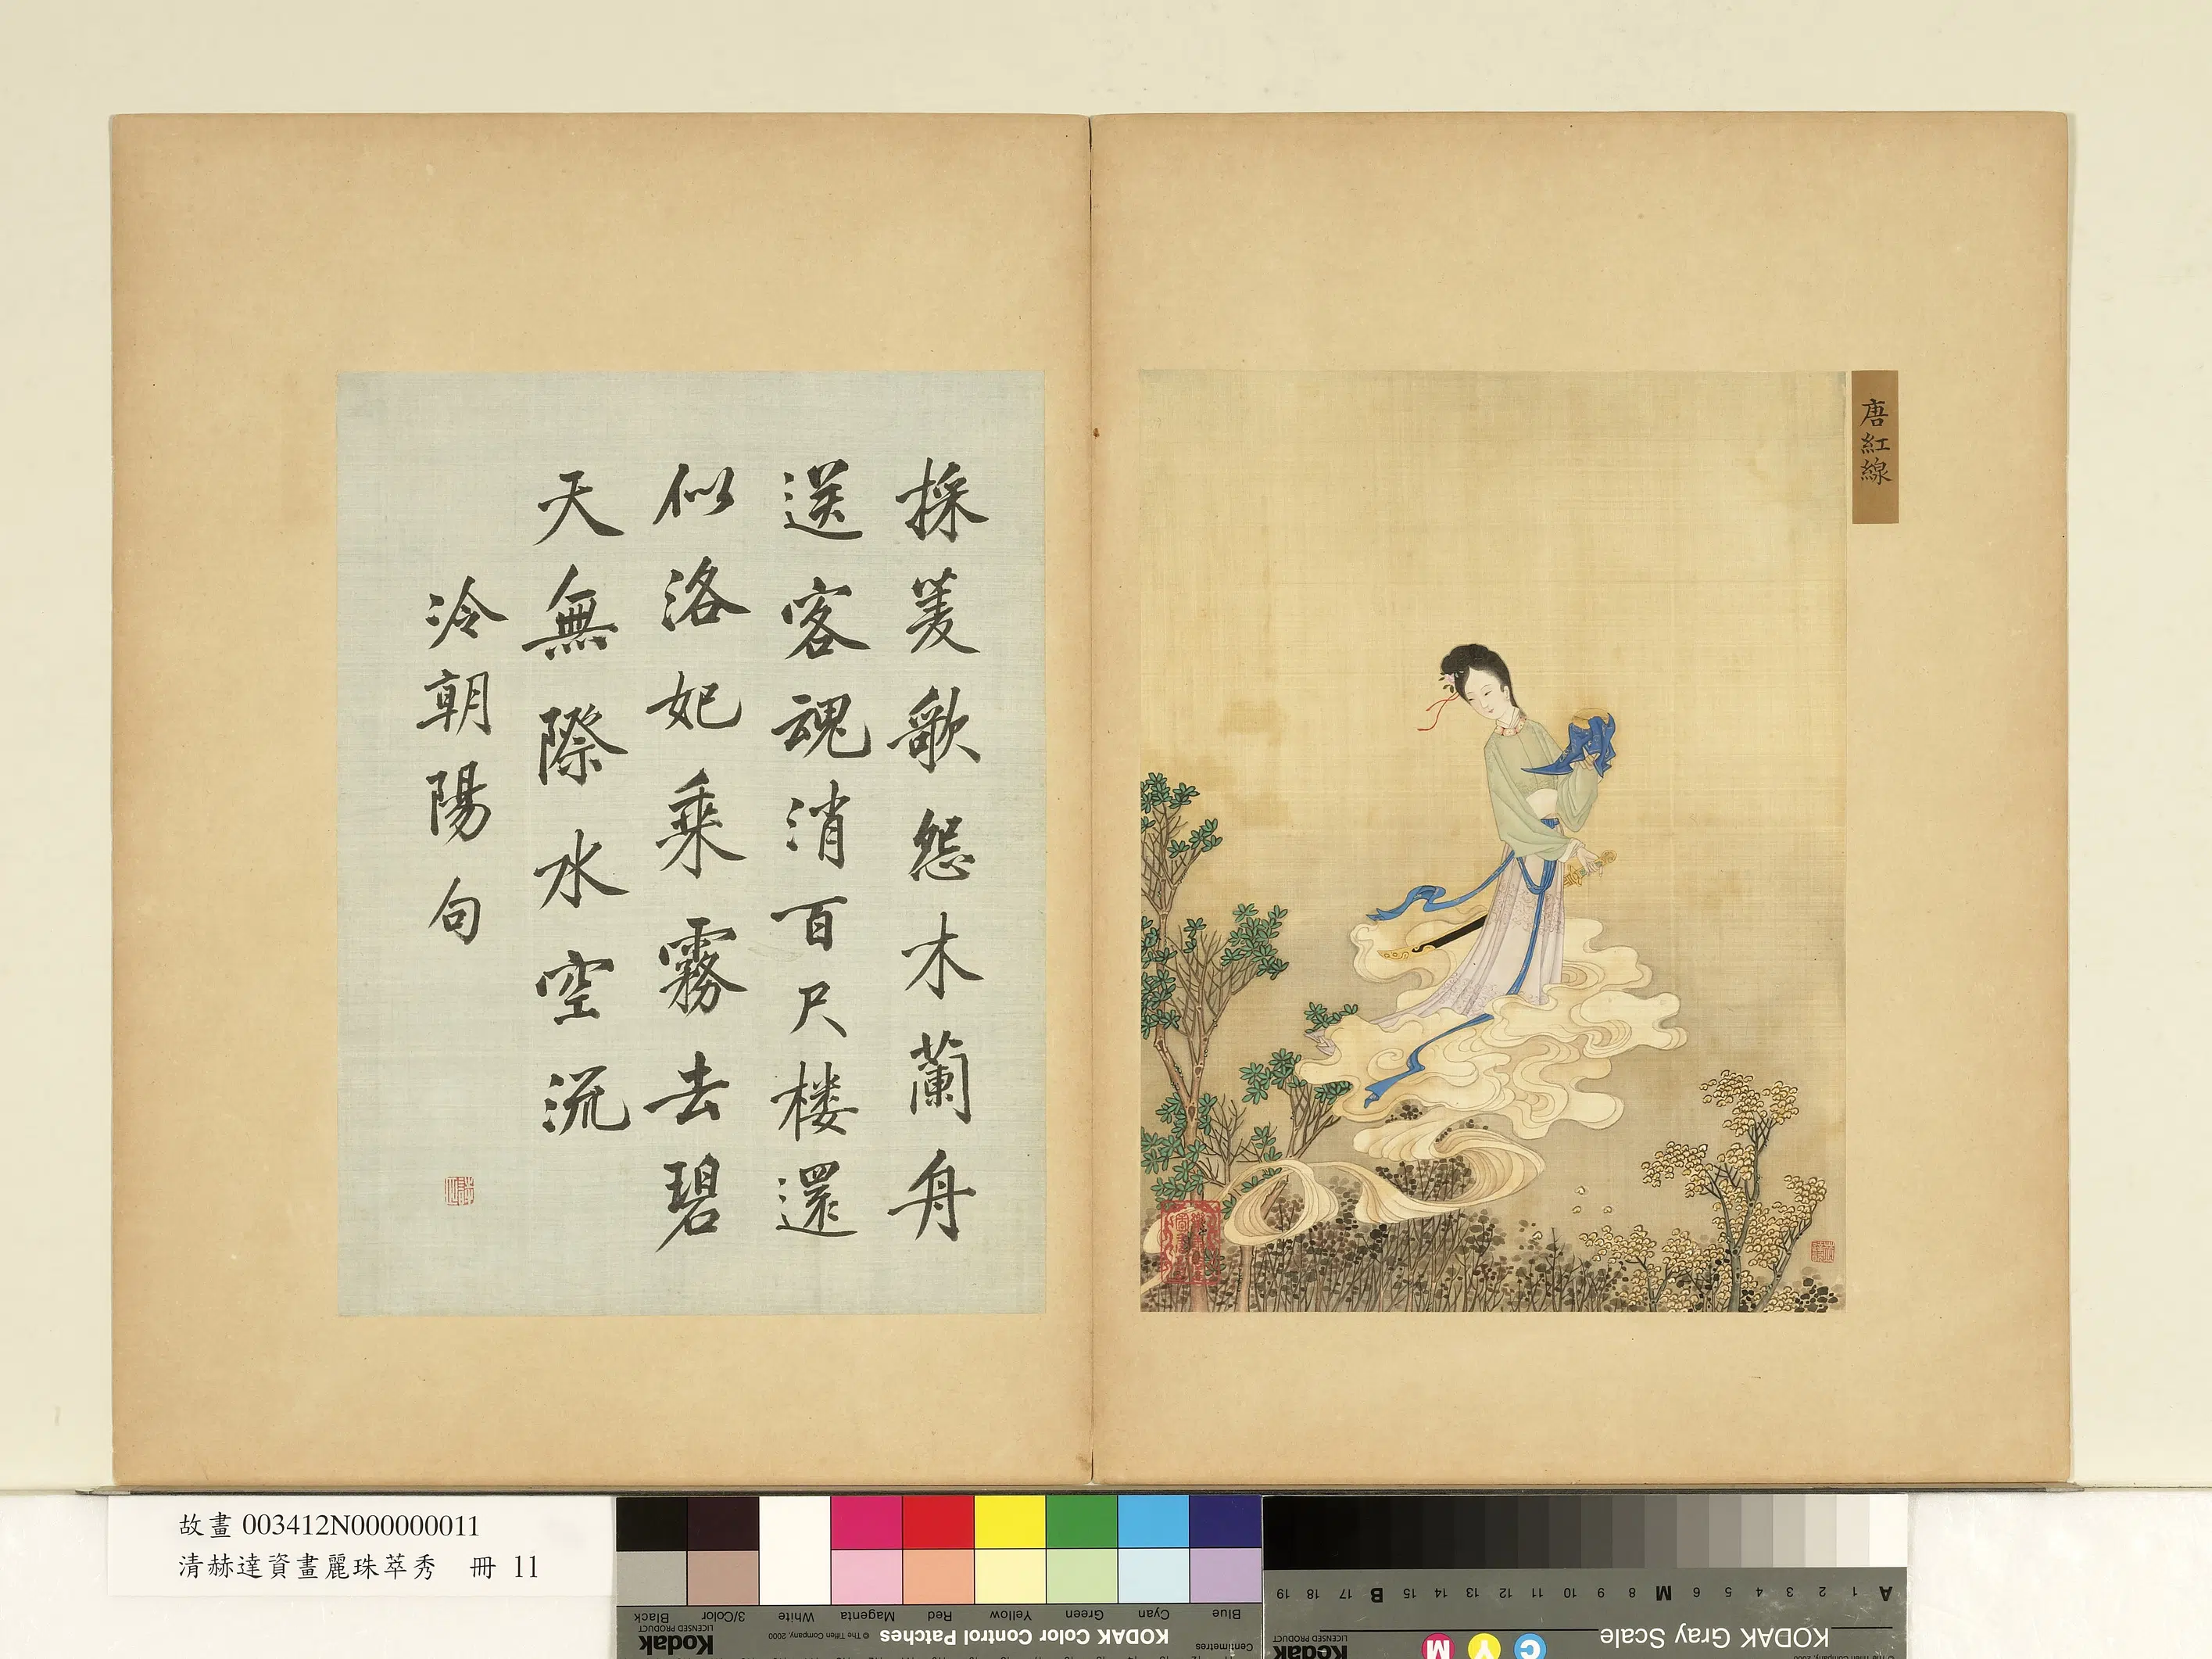 唐紅線
採菱歌怨木蘭舟
送客魂消百尺楼還
似洛妃乗霧去碧
天無際水空流
冷朝陽句
故畫 003412N000000011
清赫達資畫麗珠萃秀 冊 11
Black 3/Color White Magenta Red Yellow Green Cyan Blue
Kodak
LICENSED PRODUCT
© The Tiffen Company, 2000
KODAK Color Control Patches
Centimetres
A 1 2 3 4 5 6 M 8 9 10 11 12 13 14 15 B 17 18 19
KODAK Gray Scale
C Y M
Kodak
LICENSED PRODUCT